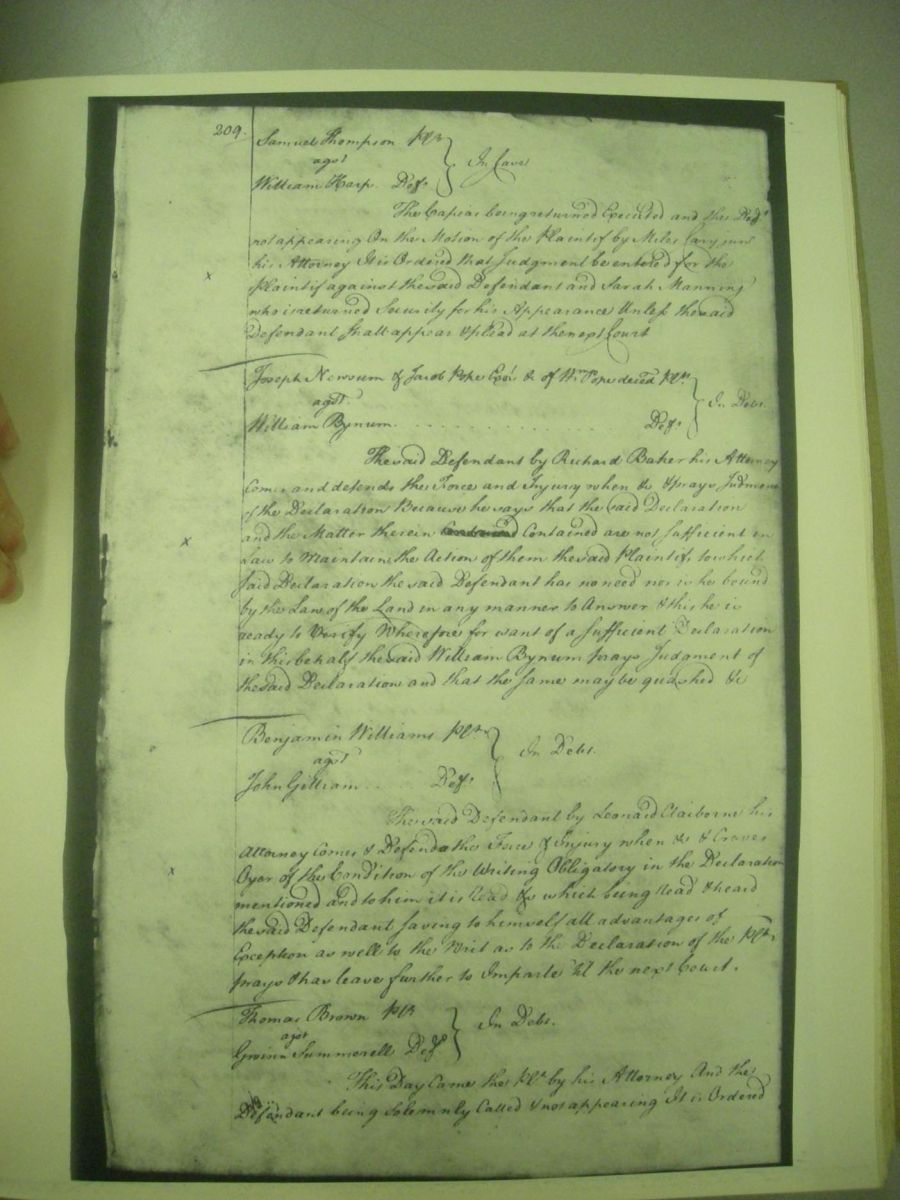 209.
Samuel Thompson Pltf
agst
William Harp. Deft
In Case
The Capias being returned Executed and the Deft
not appearing On the Motion of the Plaintif by Miles Cary junr
his Attorney It is Ordered that Judgment be entered for the
Plaintif against the said Defendant and Sarah Manning
who is returned Security for his Appearance Unless the said
Defendant shall appear & plead at the next Court
Joseph Newsum & Jacob Pope Exrs &c of Wm Pope decd Plts
agst
William Bynum. Deft
In Debt.
The said Defendant by Richard Baker his Attorney
Comes and defends the Force and Injury when &c & prays Judment
of the Declaration Because he says that the said Declaration
and the Matter therein Contained are not sufficient in
Law to Maintain the Action of them the said Plaintifs, to which
said Declaration the said Defendant has no need nor is he bound
by the Law of the Land in any manner to Answer & this he is
ready to Verify Wherefore for want of a sufficient Declaration
in this behalf the said William Bynum prays Judgment of
the said Declaration and that the same may be quashed &c
Benjamin Williams Pltf
agst
John Gilliam Deft
In Debt.
The said Defendant by Leonard Claiborne his
Attorney comes & Defends the Force & Injury when &c & Craves
Oyer of the Condition of the Writing Obligatory in the Declaration
mentioned and to him it is Read &c which being Read & heard
the said Defendant saving to himself all advantages of
Exception as well to the Writ as to the Declaration of the Pltf.
prays & has leave further to Imparle 'til the next Court.
Thomas Brown Pltf
agst
Gwinn Summerell Deft
In Debt.
This Day Came the Pltf by his Attorney And the
Defendant being Solemnly Called & not appearing It is Ordered